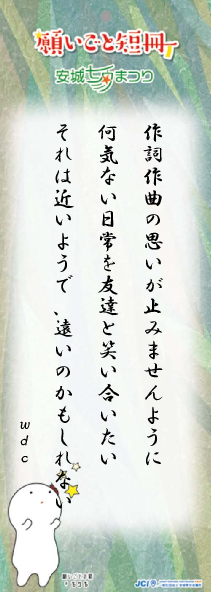 願いごと短冊
安城七夕まつり
作詞作曲の思いが止みませんように
何気ない日常を友達と笑い合いたい
それは近いようで、遠いのかもしれない
wdc